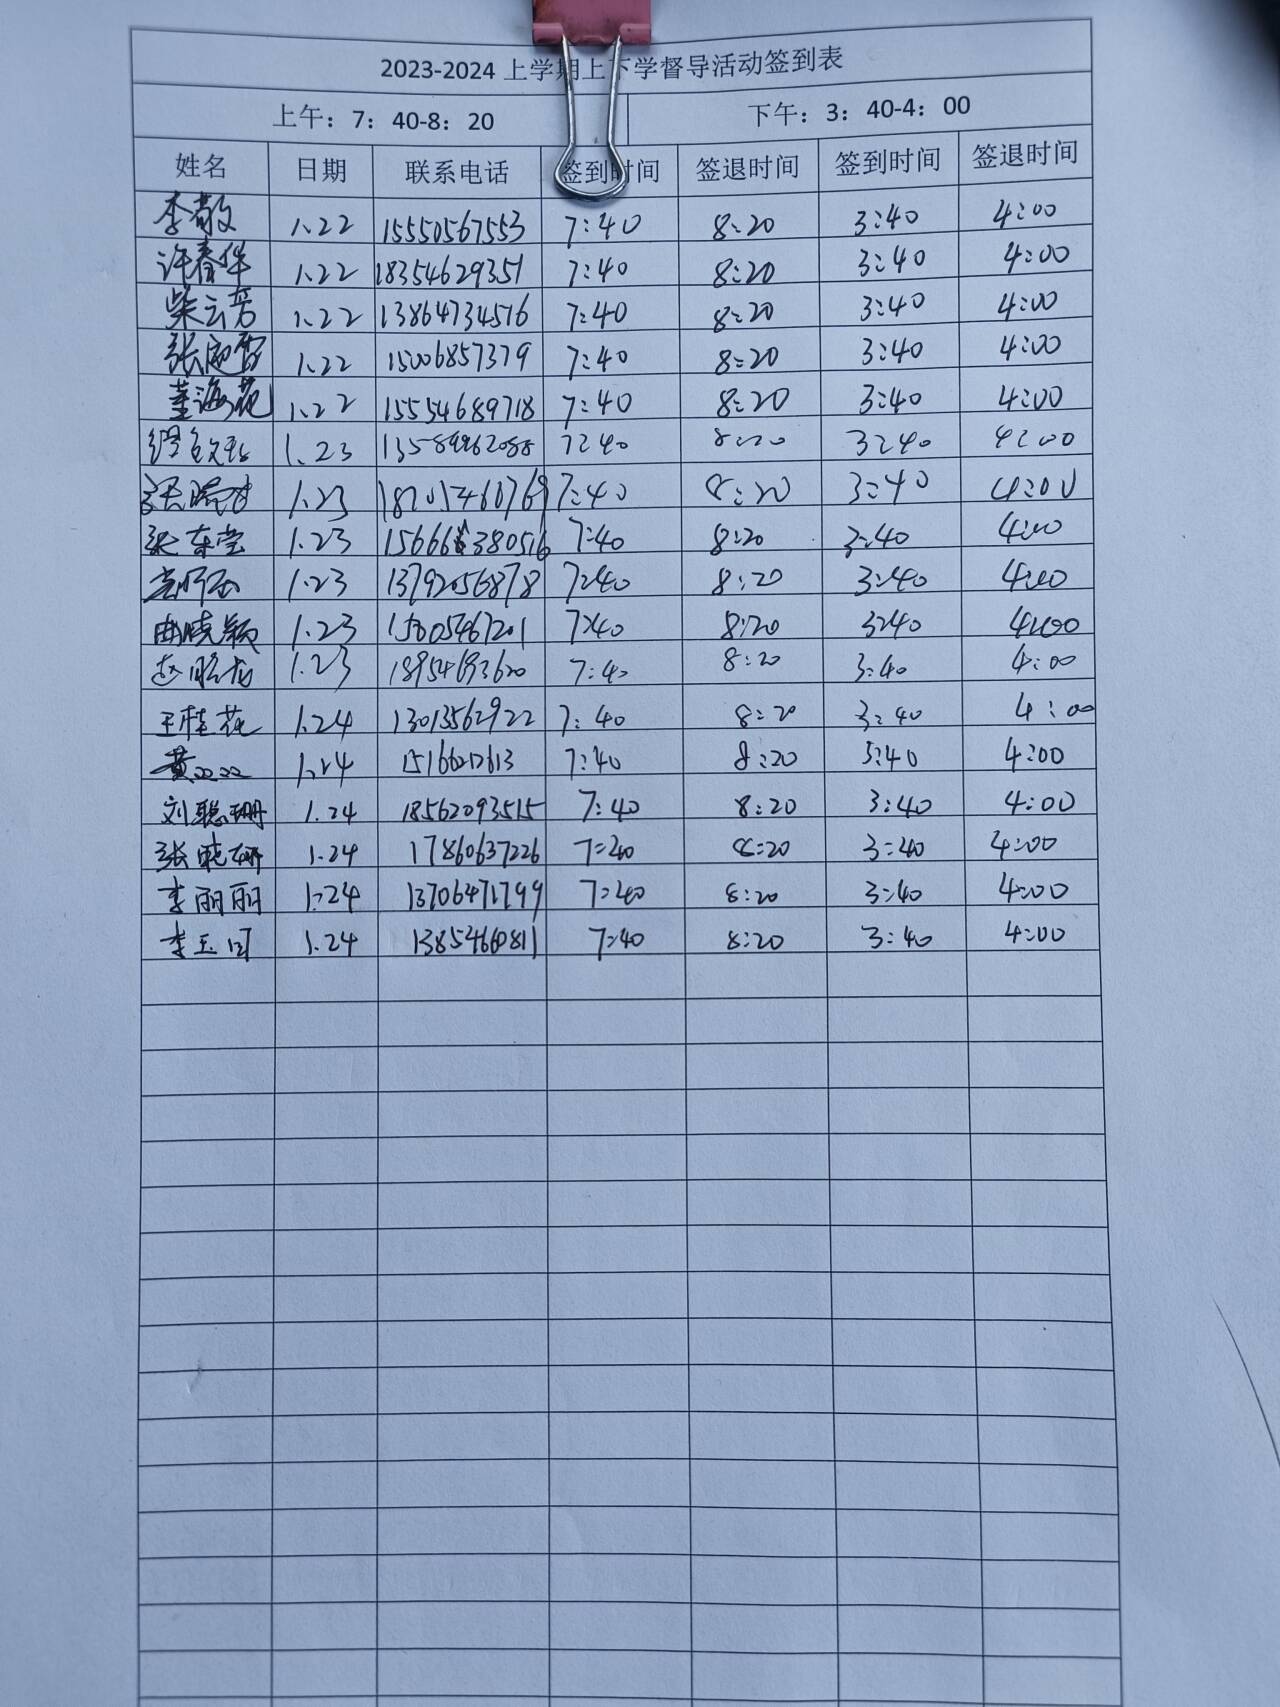 2023-2024 上学期上下学督导活动签到表
上午：7：40-8：20 下午：3：40-4：00
姓名 日期 联系电话 签到时间 签退时间 签到时间 签退时间
李敬 1.22 15550567553 7:40 8:20 3:40 4:00
许春华 1.22 18354629351 7:40 8:20 3:40 4:00
柴云芳 1.22 13864734516 7:40 8:20 3:40 4:00
张 1.22 15006857379 7:40 8:20 3:40 4:00
董海花 1.22 15554689718 7:40 8:20 3:40 4:00
1.23 13589962088 7:40 8:20 3:40 4:00
张 1.23 7:40 8:20 3:40 4:00
张东莹 1.23 7:40 8:20 3:40 4:00
1.23 13792056878 7:40 8:20 3:40 4:00
曲晓颖 1.23 15805467201 7:40 8:20 3:40 4:00
赵 1.23 18954693620 7:40 8:20 3:40 4:00
王桂花 1.24 13013562922 7:40 8:20 3:40 4:00
黄 1.24 15166212613 7:40 8:20 3:40 4:00
刘聪珊 1.24 18562093515 7:40 8:20 3:40 4:00
张晓妍 1.24 17860637226 7:40 8:20 3:40 4:00
李丽丽 1.24 13706471799 7:40 8:20 3:40 4:00
李玉 1.24 13854660811 7:40 8:20 3:40 4:00